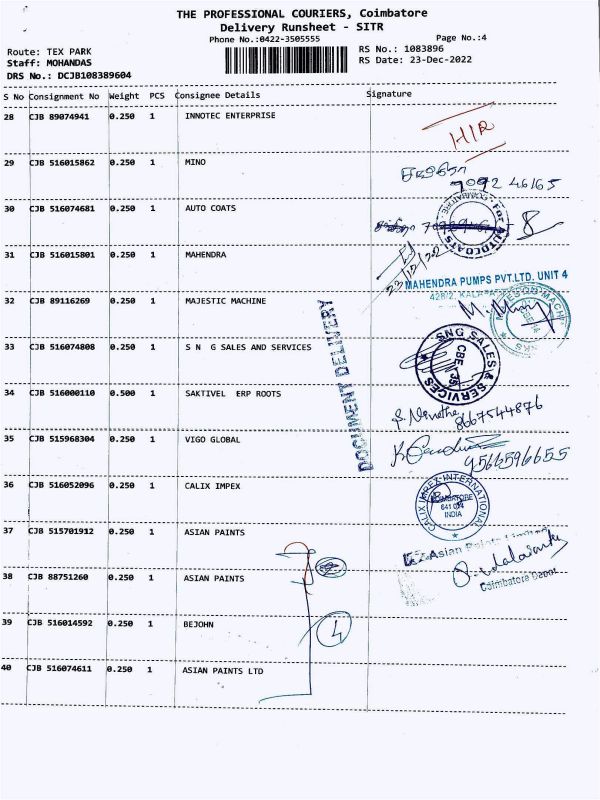 THE PROFESSIONAL COURIERS, Coimbatore
Delivery Runsheet - SITR
Phone No.:0422-3505555 Page No.:4
Route: TEX PARK RS No.: 1083896
Staff: MOHANDAS RS Date: 23-Dec-2022
DRS No.: DCJB108389604
S No Consignment No Weight PCS Consignee Details Signature
28 CJB 89074941 0.250 1 INNOTEC ENTERPRISE
29 CJB 516015862 0.250 1 MINO
30 CJB 516074681 0.250 1 AUTO COATS
For AUTOCOATS
COIMBATORE
23/12/22
31 CJB 516015801 0.250 1 MAHENDRA
MAHENDRA PUMPS PVT.LTD. UNIT 4
32 CJB 89116269 0.250 1 MAJESTIC MACHINE
DOCUMENT DELIVERY
33 CJB 516074808 0.250 1 S N G SALES AND SERVICES
SNG SALES & SERVICES
CBE - 35
34 CJB 516000110 0.500 1 SAKTIVEL ERP ROOTS
8667544876
35 CJB 515968304 0.250 1 VIGO GLOBAL
9566596655
36 CJB 516052096 0.250 1 CALIX IMPEX
CALIX IMPEX INTERNATIONAL
COIMBATORE
641 014
INDIA
37 CJB 515701912 0.250 1 ASIAN PAINTS
Asian Paints Limited
38 CJB 88751260 0.250 1 ASIAN PAINTS
Coimbatore Depot
39 CJB 516014592 0.250 1 BEJOHN
4
40 CJB 516074611 0.250 1 ASIAN PAINTS LTD